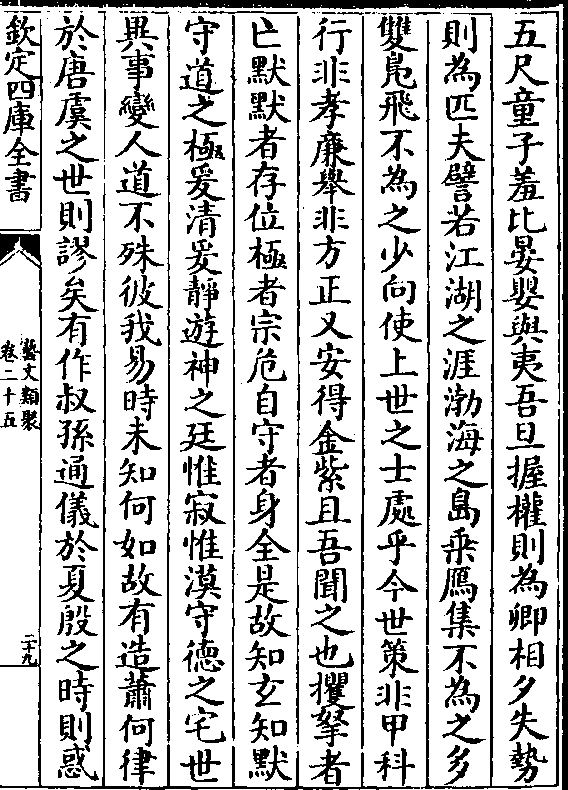 五尺童子羞比晏嬰與夷吾旦握權則為卿相夕失勢
則為匹夫譬若江湖之涯渤海之島乗鴈集不為之多
雙鳬飛不為之少向使上世之士處乎今世策非甲科
行非孝廉舉非方正又安得金紫且吾聞之也攫拏者
亡默默者存位極者宗危自守者身全是故知玄知默
守道之極爰清爰靜遊神之廷惟寂惟漠守德之宅世
異事變人道不殊彼我易時未知何如故有造蕭何律
於唐虞之世則謬矣有作叔孫通儀於夏殷之時則惑
欽定四庫全書
藝文類聚
卷二十五
二十九